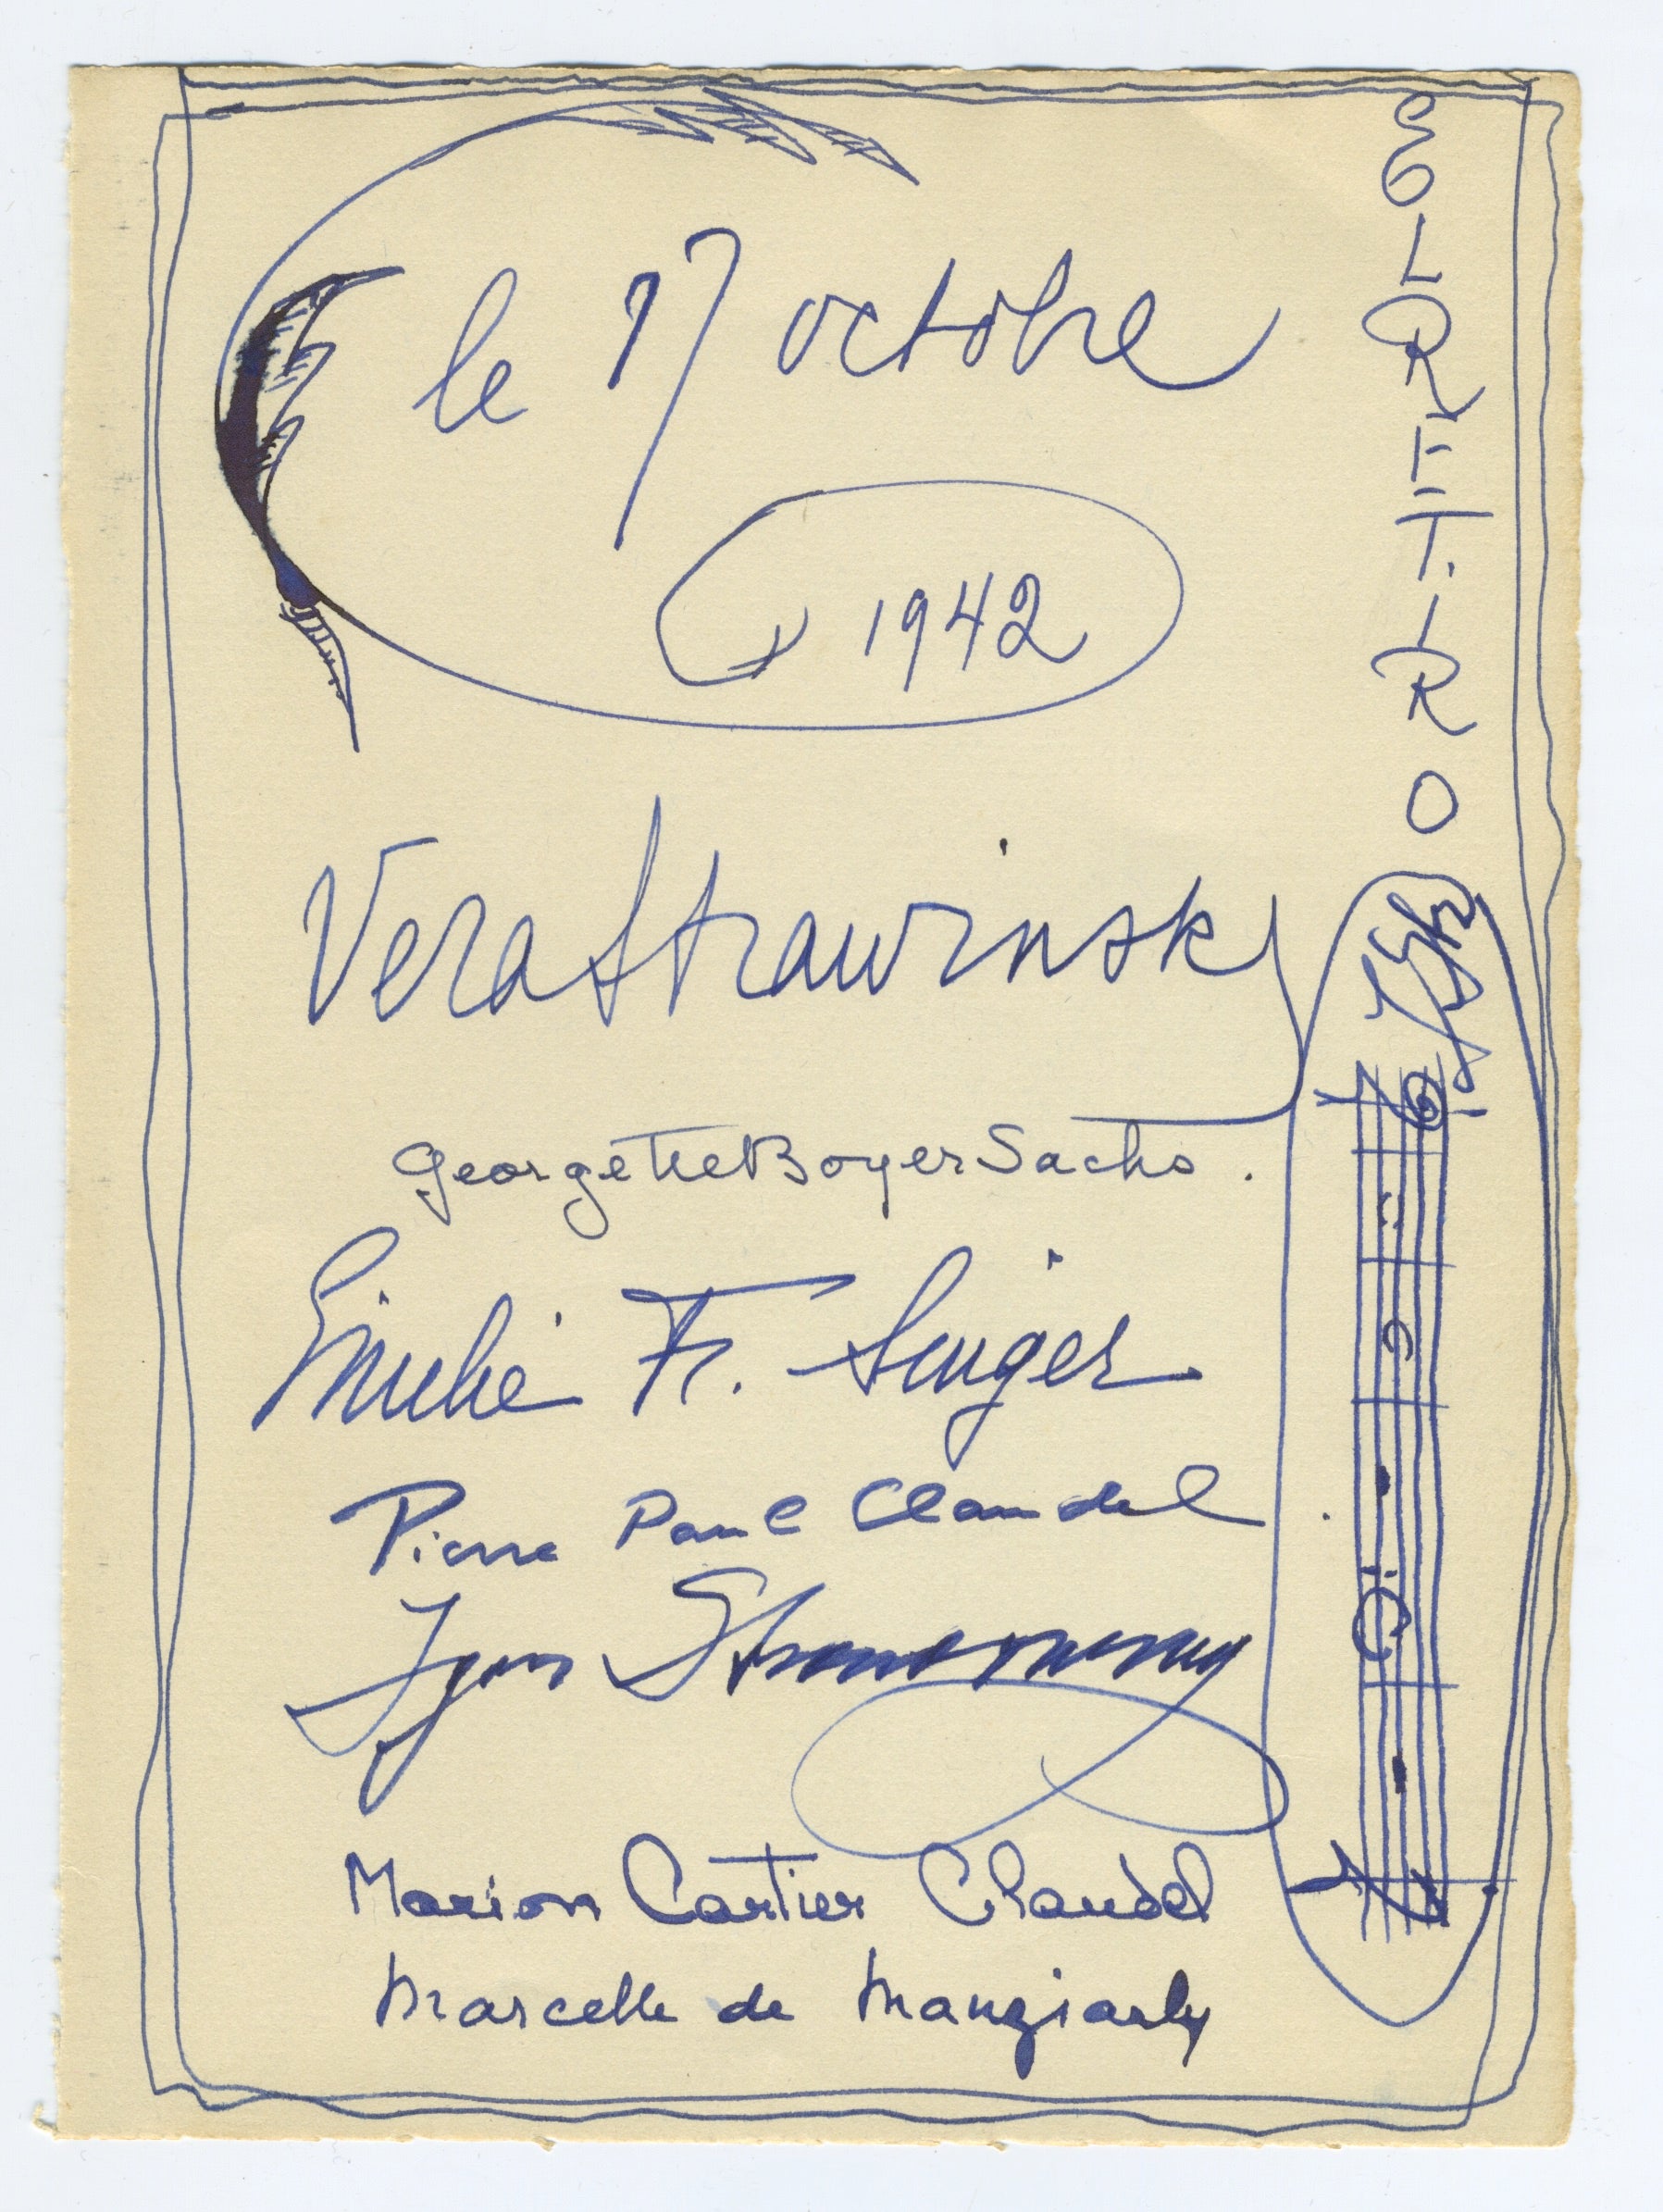 le 17 octobre
1942
Vera Strawinsky
Georgette Boyer Sachs.
Emilie F. Singer
Pierre Paul Claudel.
Igor Strawinsky
Marion Cartier Claudel
Marcelle de Manziarly